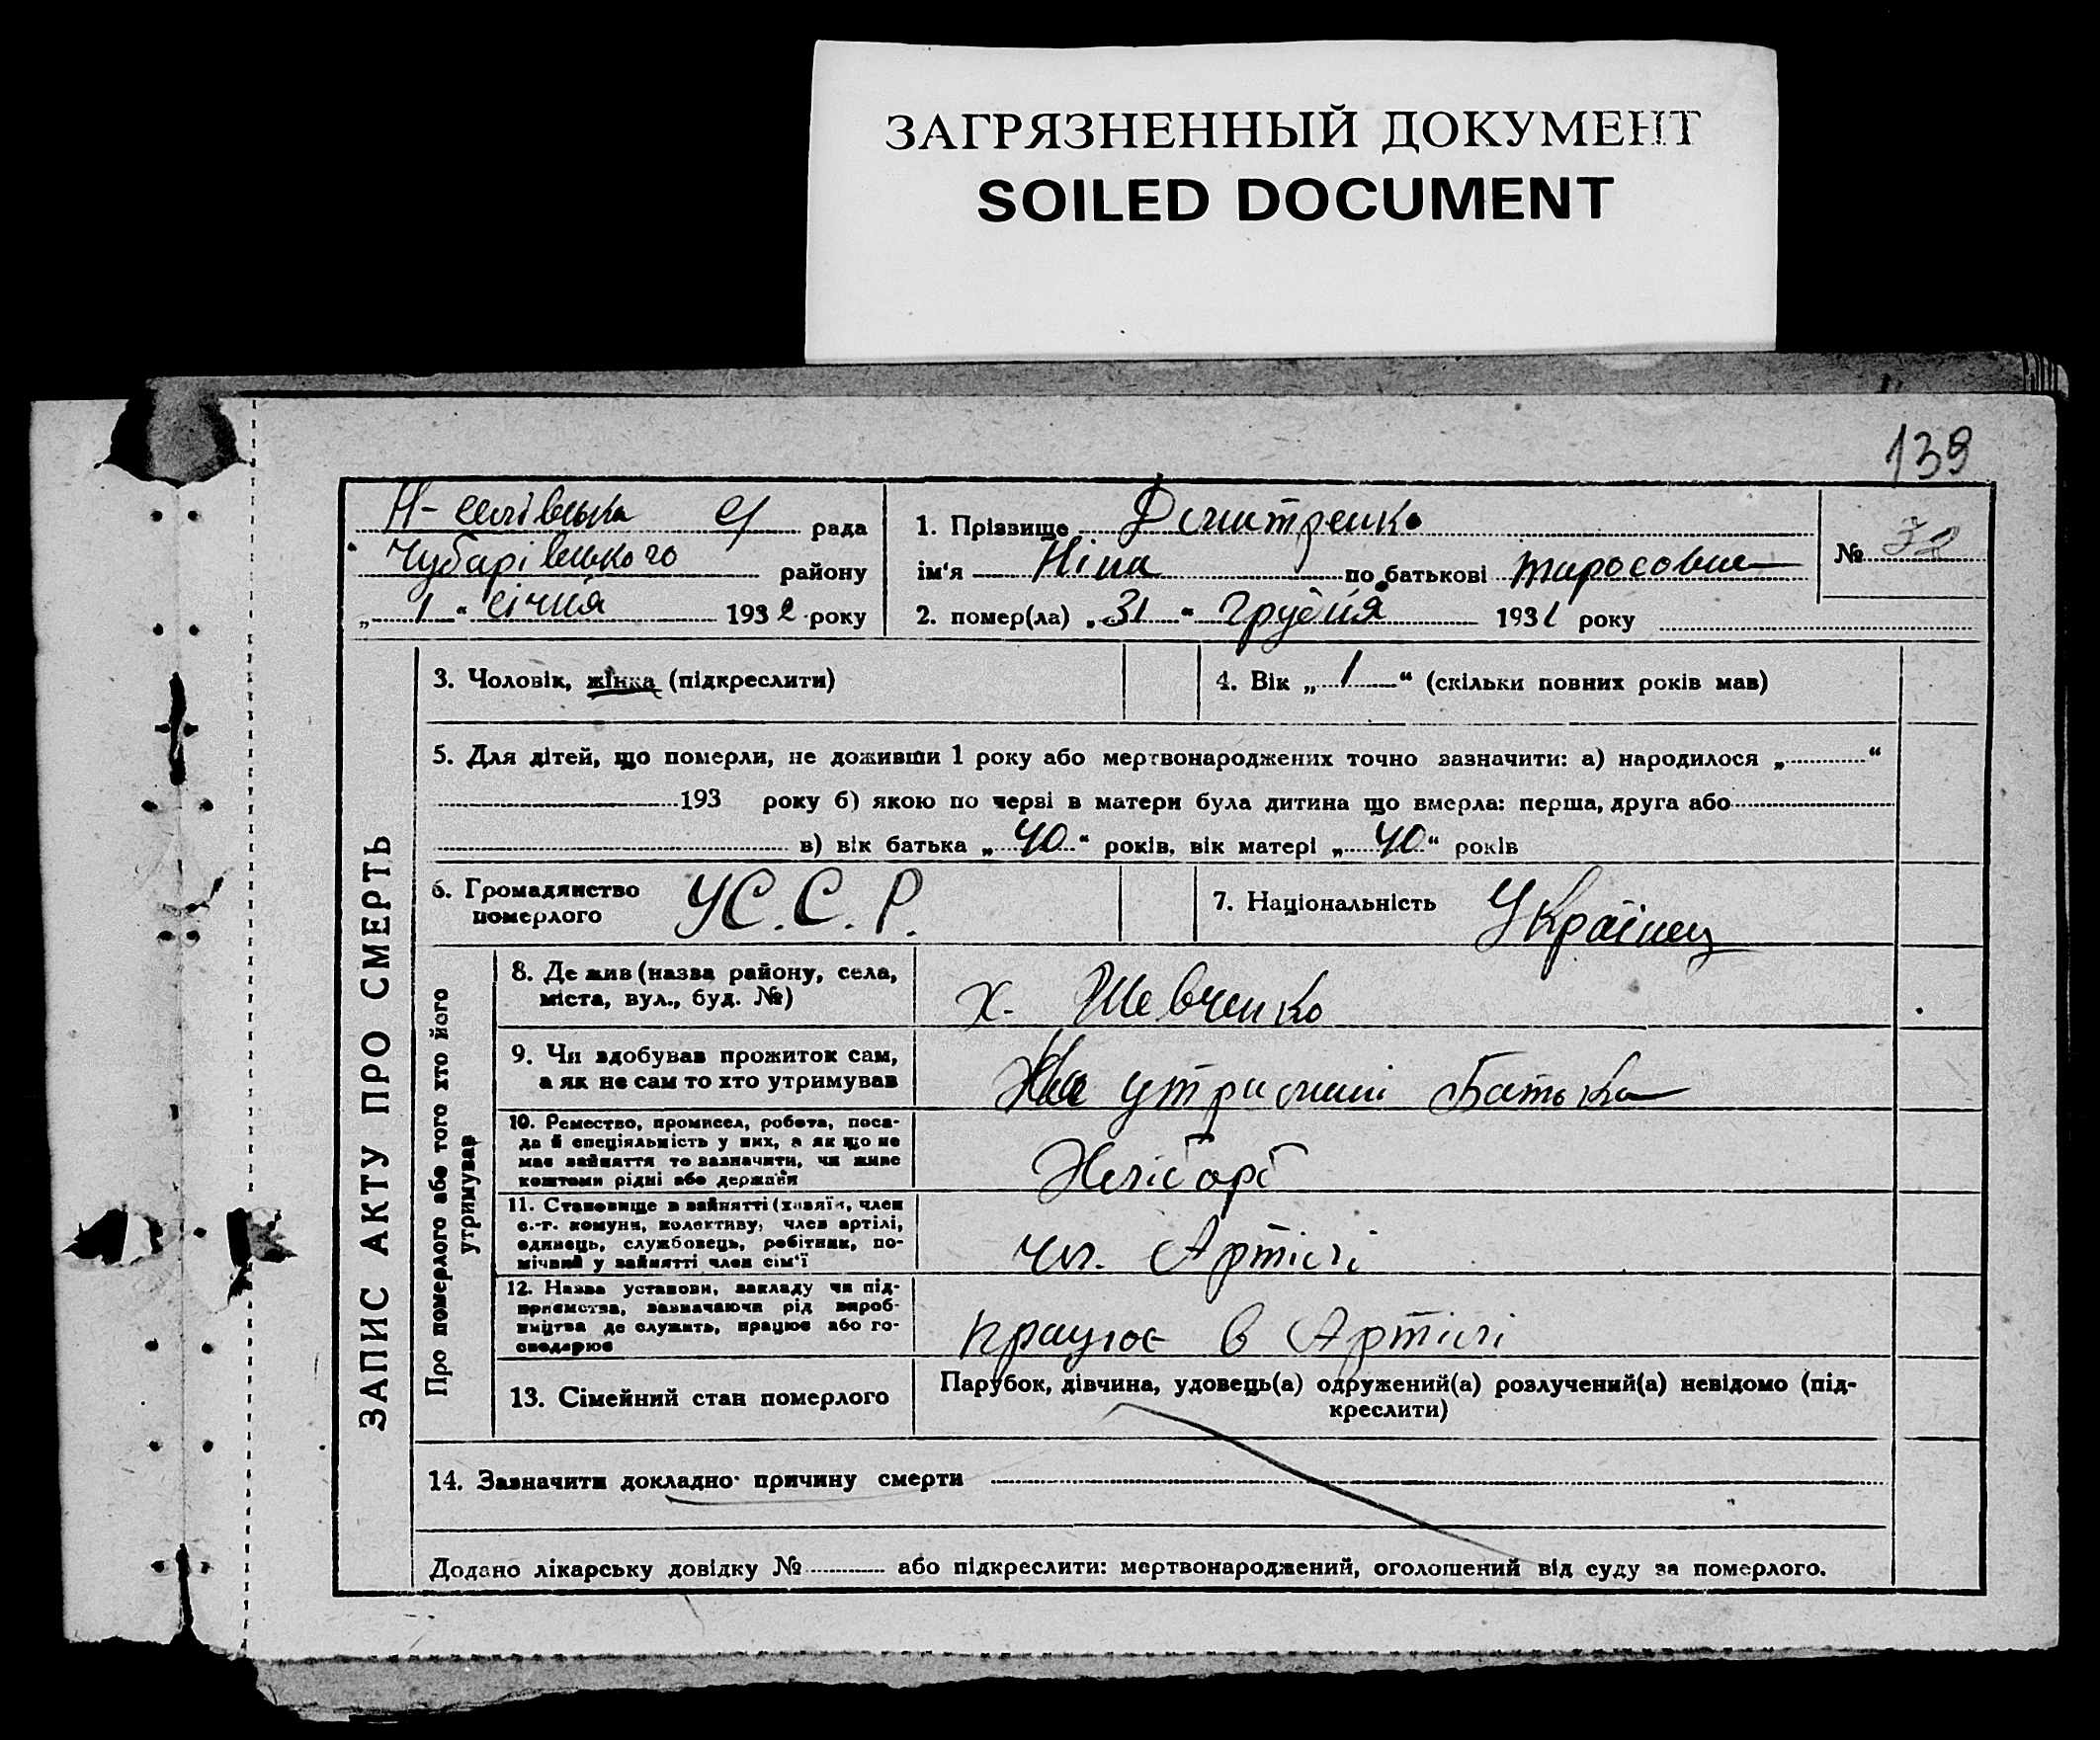 ЗАГРЯЗНЕННЫЙ ДОКУМЕНТ
SOILED DOCUMENT
139
рада
Чубарівського району
„ 1 “ січня 1932 року
1. Прізвище Дмитренко
ім'я Ніна по батькові
№
2. помер(ла) „ 31 “ Грудня 1931 року
ЗАПИС АКТУ ПРО СМЕРТЬ
3. Чоловік, жінка (підкреслити)
4. Вік „ 1 “ (скільки повних років мав)
5. Для дітей, що померли, не доживши 1 року або мертвонароджених точно зазначити: а) народилося „ “
193 року б) якою по черві в матери була дитина що вмерла: перша, друга або
в) вік батька „ 40 “ років, вік матері „ 40 “ років
6. Громадянство
померлого
УС.С.Р.
7. Національність Українец
Про померлого або того хто його
утримував
8. Де жив (назва району, села,
міста, вул., буд. №)
х. Шевченко
9. Чи здобував прожиток сам,
а як не сам то хто утримував
На утримині Батька
10. Ремество, промисел, робота, поса-
да й спеціяльність у них, а як що не
має зайняття то зазначити, чи живе
коштами рідні або держави
Хлібороб
11. Становище в зайнятті (хазяїн, член
с.-г. комуни, колективу, член артілі,
одинець, службовець, робітник, по-
мічний у зайнятті член сім'ї
чл. Артілі
12. Назва установи, закладу чи під-
приємства, зазначаючи рід вироб-
ництва де служить, працює або го-
сподарює
працює в Артілі
13. Сімейний стан померлого
Парубок, дівчина, удовець(а) одружений(а) розлучений(а) невідомо (під-
креслити)
14. Зазначити докладно причину смерти
Додано лікарську довідку № або підкреслити: мертвонароджений, оголошений від суду за померлого.